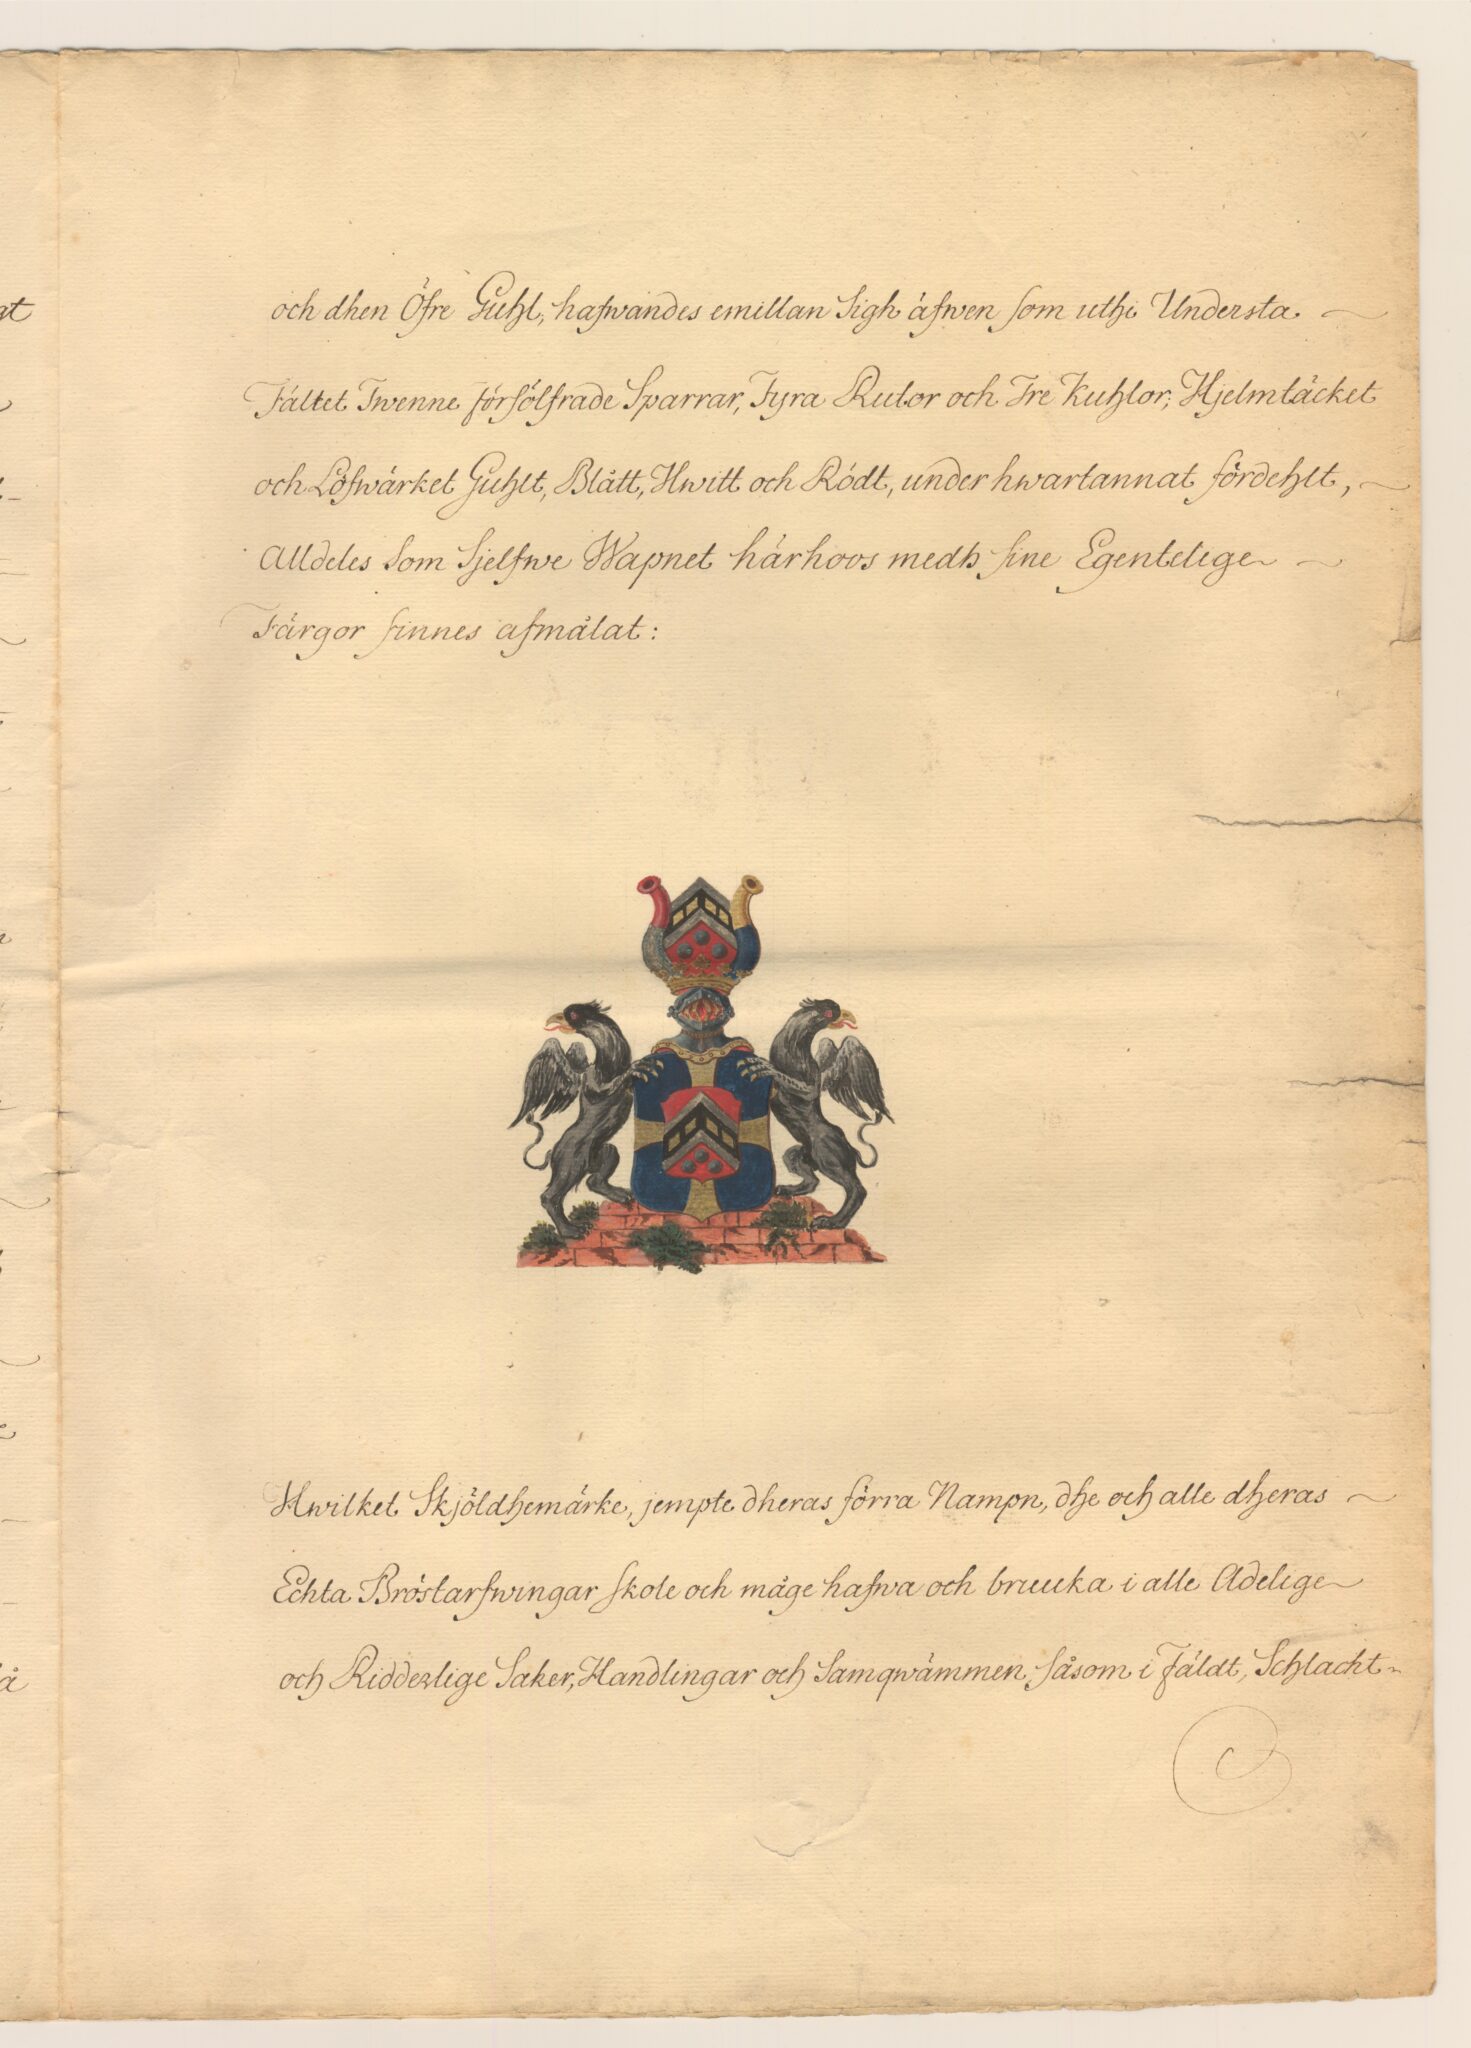 och dhen Öfre Guhl, hafwandes emillan Sigh äfwen som uthi Understa
Fältet Twenne försölfrade Sparrar, Fyra Rutor och Tre Kuhlor; Hjelmtäcket
och Löfwärket Guhlt, Blått, Hwitt och Rödt, under hwartannat fördehlt,
Alldeles som Sjelfwe Wapnet härhoos medh sine Egentelige
Färgor finnes afmålat:
Hwilket Skjöldhemärke, jempte dheras förra Nampn, dhe och alle dheras
Echta Bröstarfwingar skole och måge hafwa och bruuka i alle Adelige
och Ridderlige Saker, Handlingar och Samqwämmen, såsom i Fäldt, Schlacht-